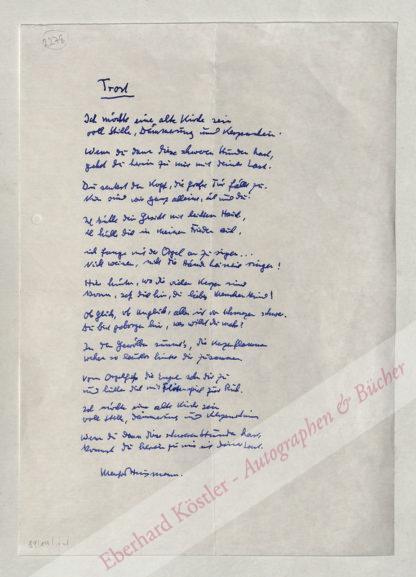 2276
Trost
Ich möchte eine alte Kirche sein
voll Stille, Dämmerung und Kerzenschein.
Wenn du dann diese schweren Stunden hast,
gehst du herein zu mir mit deiner Last.
Du senkst den Kopf, die große Tür fällt zu.
Nun sind wir ganz alleine, ich und du.
Ich dein Gesicht mit Hand,
ich hüll dich in meinen Frieden ein,
ich fange mit der Orgel an zu singen...
Nicht weinen, nicht die Hände ringen!
Hier hinten, wo die vielen Kerzen sind
komm, setz dich hin, du liebes Menschenkind!
Ob Glück, ob Unglück, alles ist so schwer.
Du bist geborgen hier, was willst du mehr?
In den Gewölben summt's, die Kerzenflammen
wehen so
vom die Engel sehn dir zu
und hüllen dich mit Flötenspiel zur Ruh.
Ich möchte eine alte Kirche sein
voll Stille, Dämmerung und Kerzenschein
Wenn du dann diese schweren Stunden hast,
kommst du herein zu mir mit deiner Last.
Manfred Hausmann.
Eberhard Köstler - Autographen & Bücher